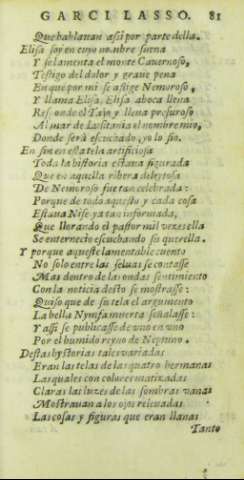 GARCI LASSO. 81
Que hablauan assi por parte della.
Elisa soy en cuyo nombre suena
Y se lamenta el monte Cauernoso,
Testigo del dolor y graue pena
En que por mi se aflige Nemoroso,
Y llama Elisa, Elisa a boca llena
Responde el Tajo y lleua presuroso
Al mar de Lusitania el nombre mio,
Donde será escuchado, yo lo fio.
En fin en esta tela artificiosa
Toda la historia estaua figurada
Que en aquella ribera deleytosa
De Nemoroso fue tan celebrada:
Porque de todo aquesto y cada cosa
Estaua Nise ya tan informada,
Que llorando el pastor mil vezes ella
Se enternecio escuchando su querella.
Y porque aqueste lamentable cuento
No solo entre las seluas se contasse
Mas dentro de las ondas sentimiento
Con la noticia desto se mostrasse:
Quiso que de su tela el argumento
La bella Nympha muerta señalasse:
Y assi se publicasse de vno en vno
Por el humido reyno de Neptuno.
Destas hystorias tales variadas
Eran las telas de las quatro hermanas
Las quales con colores matizadas
Claras las luzes de las sombras vanas
Mostrauan a los ojos releuadas
Las cosas y figuras que eran llanas
Tanto